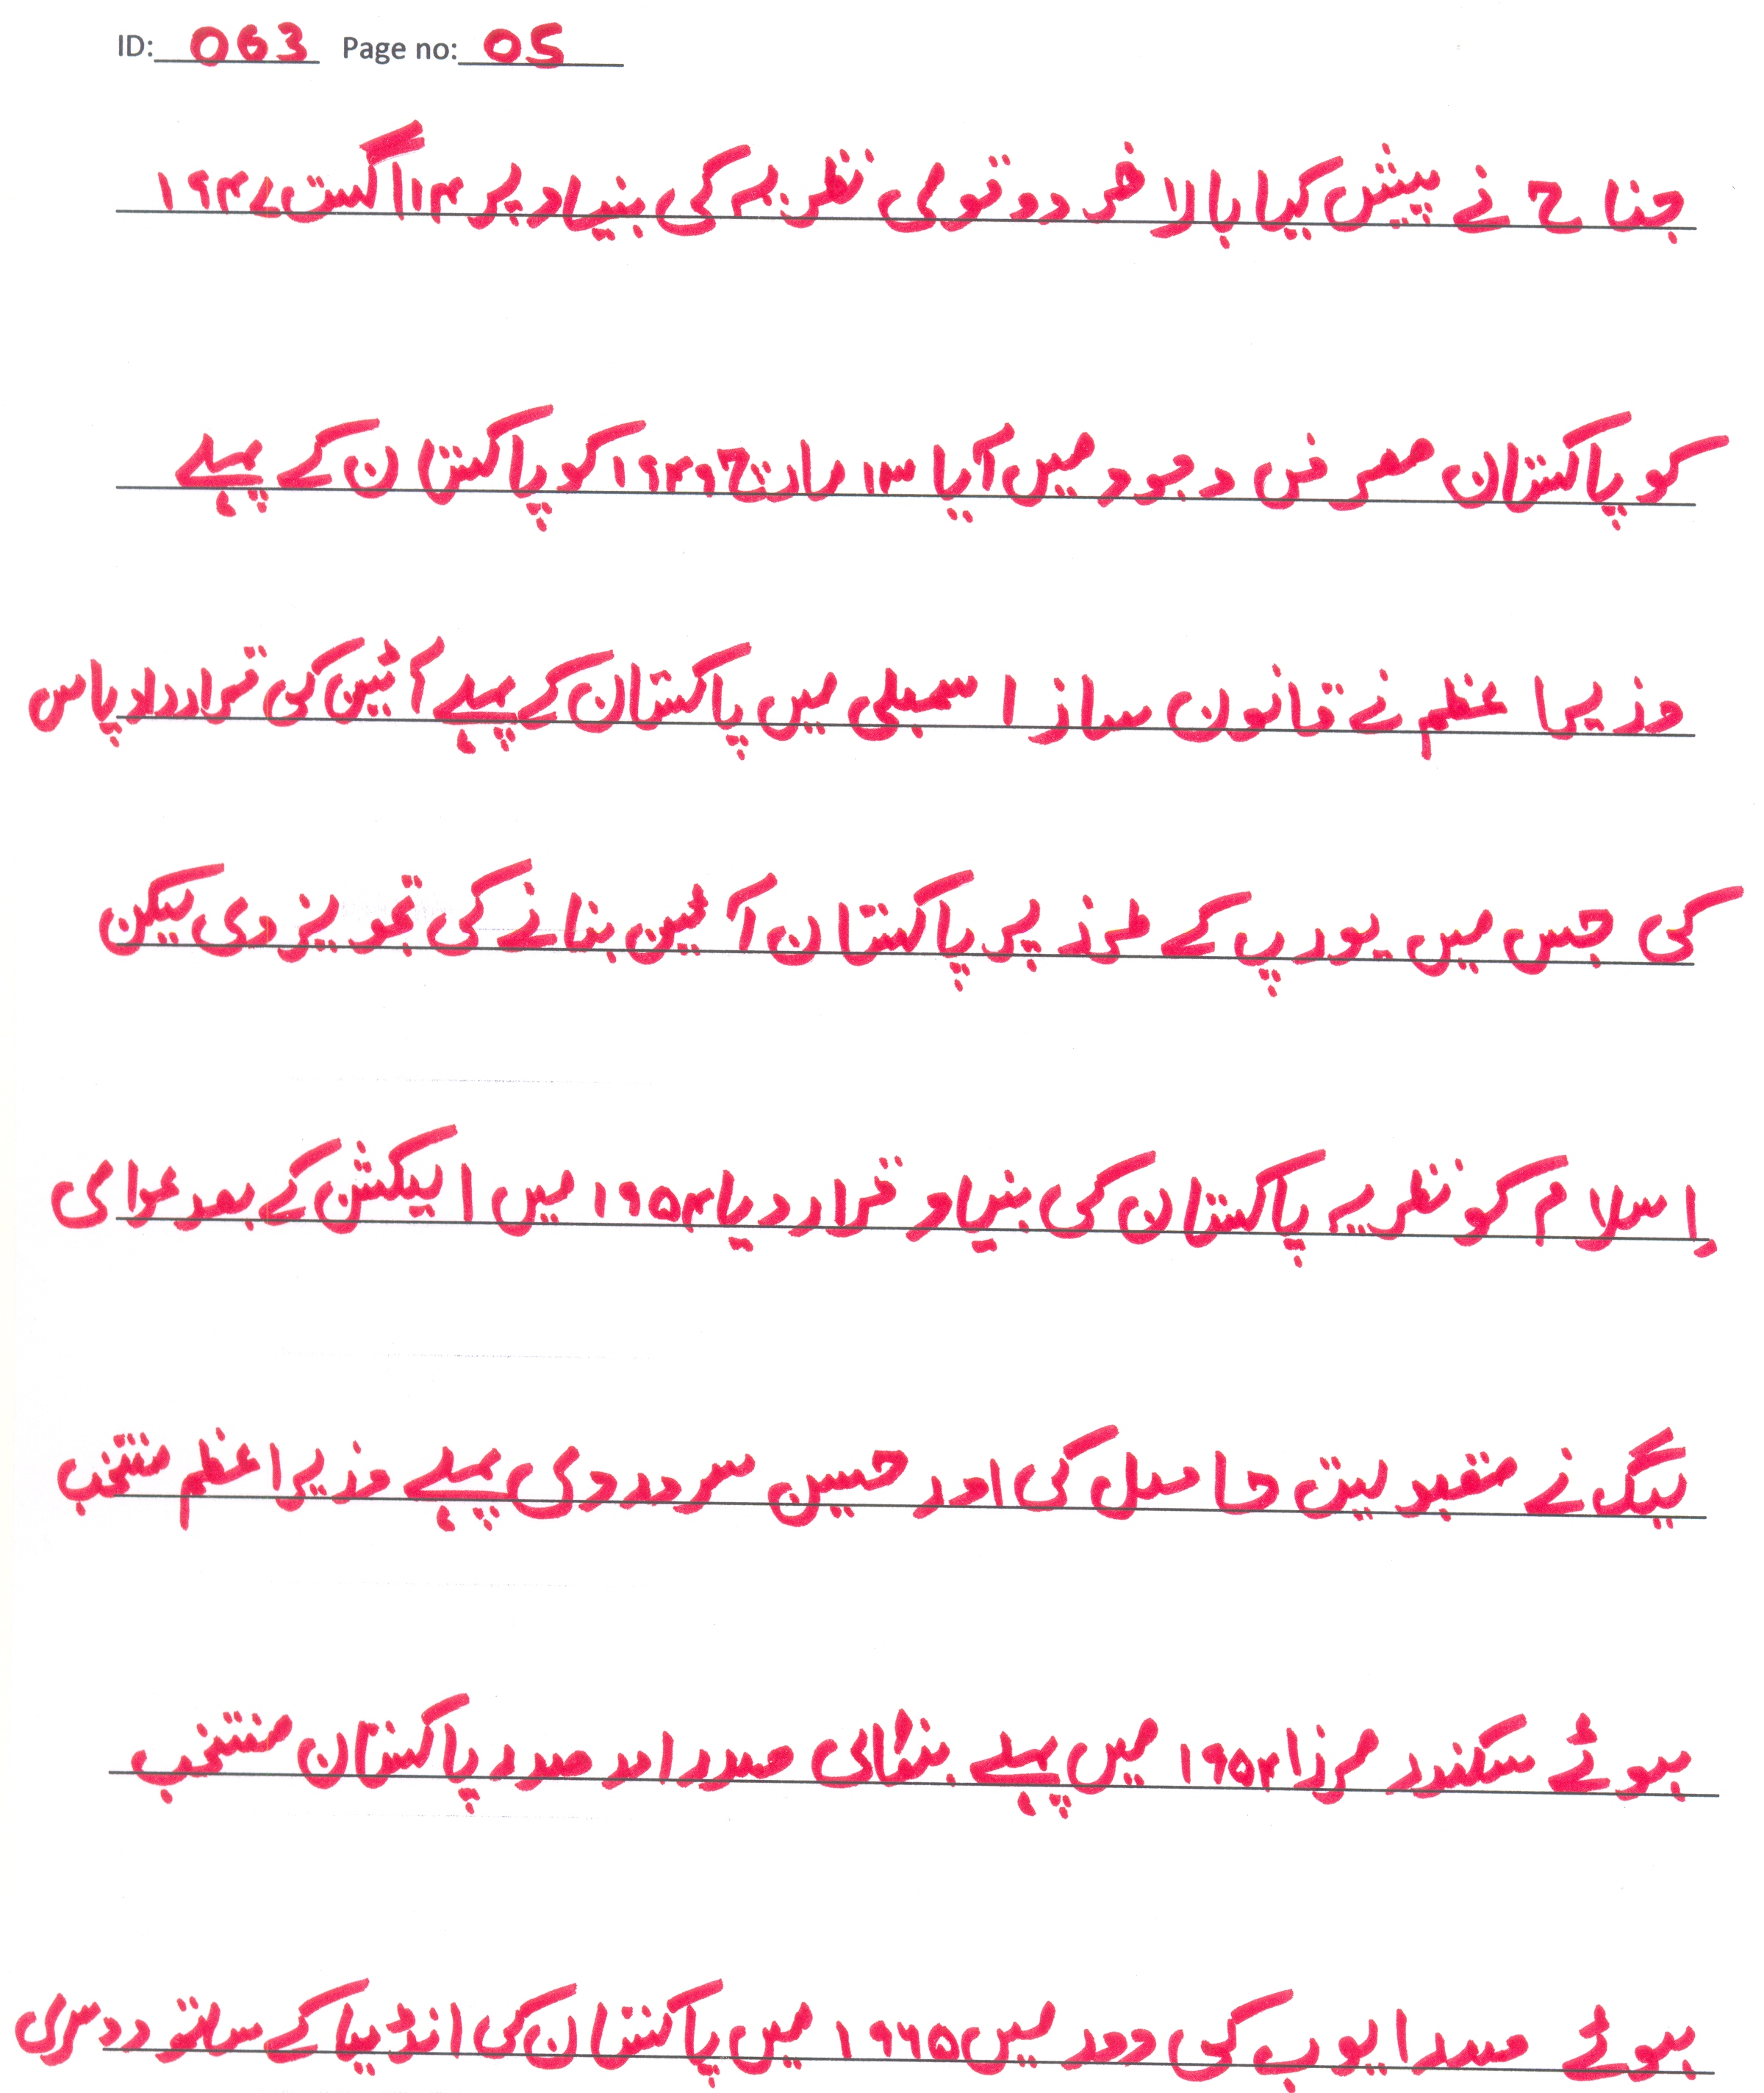 ID: 063 Page no: 05
جناح نے پیش کیا بالا خر دو قومی نظریہ کی بنیاد پر ۱۴ اگست ۱۹۴۷
کو پاکستان معرض وجود میں آیا ۱۳ مارچ ۱۹۴۹ کو پاکستان کے پہلے
وزیرا عظم نے قانون ساز اسمبلی میں پاکستان کے پہلے آئین کی قرارداد پاس
کی جس میں یورپ کے طرز پر پاکستان آئین بنانے کی تجویز دی لیکن
اِسلام کو نظریہ پاکستان کی بنیاد قرار دیا ۱۹۵۴ میں الیکشن کے بعد عوامی
لیگ نے مقبولیت حاصل کی اور حسین سروردی پہلے وزیراعظم منتخب
ہوئے سکندر مرزا ۱۹۵۴ میں پہلے بنگالی صدر اور صدر پاکستان منتخب
ہوئے صدر ایوب کی دور میں ۱۹۶۵ میں پاکستان کی انڈیا کے ساتھ دوسری